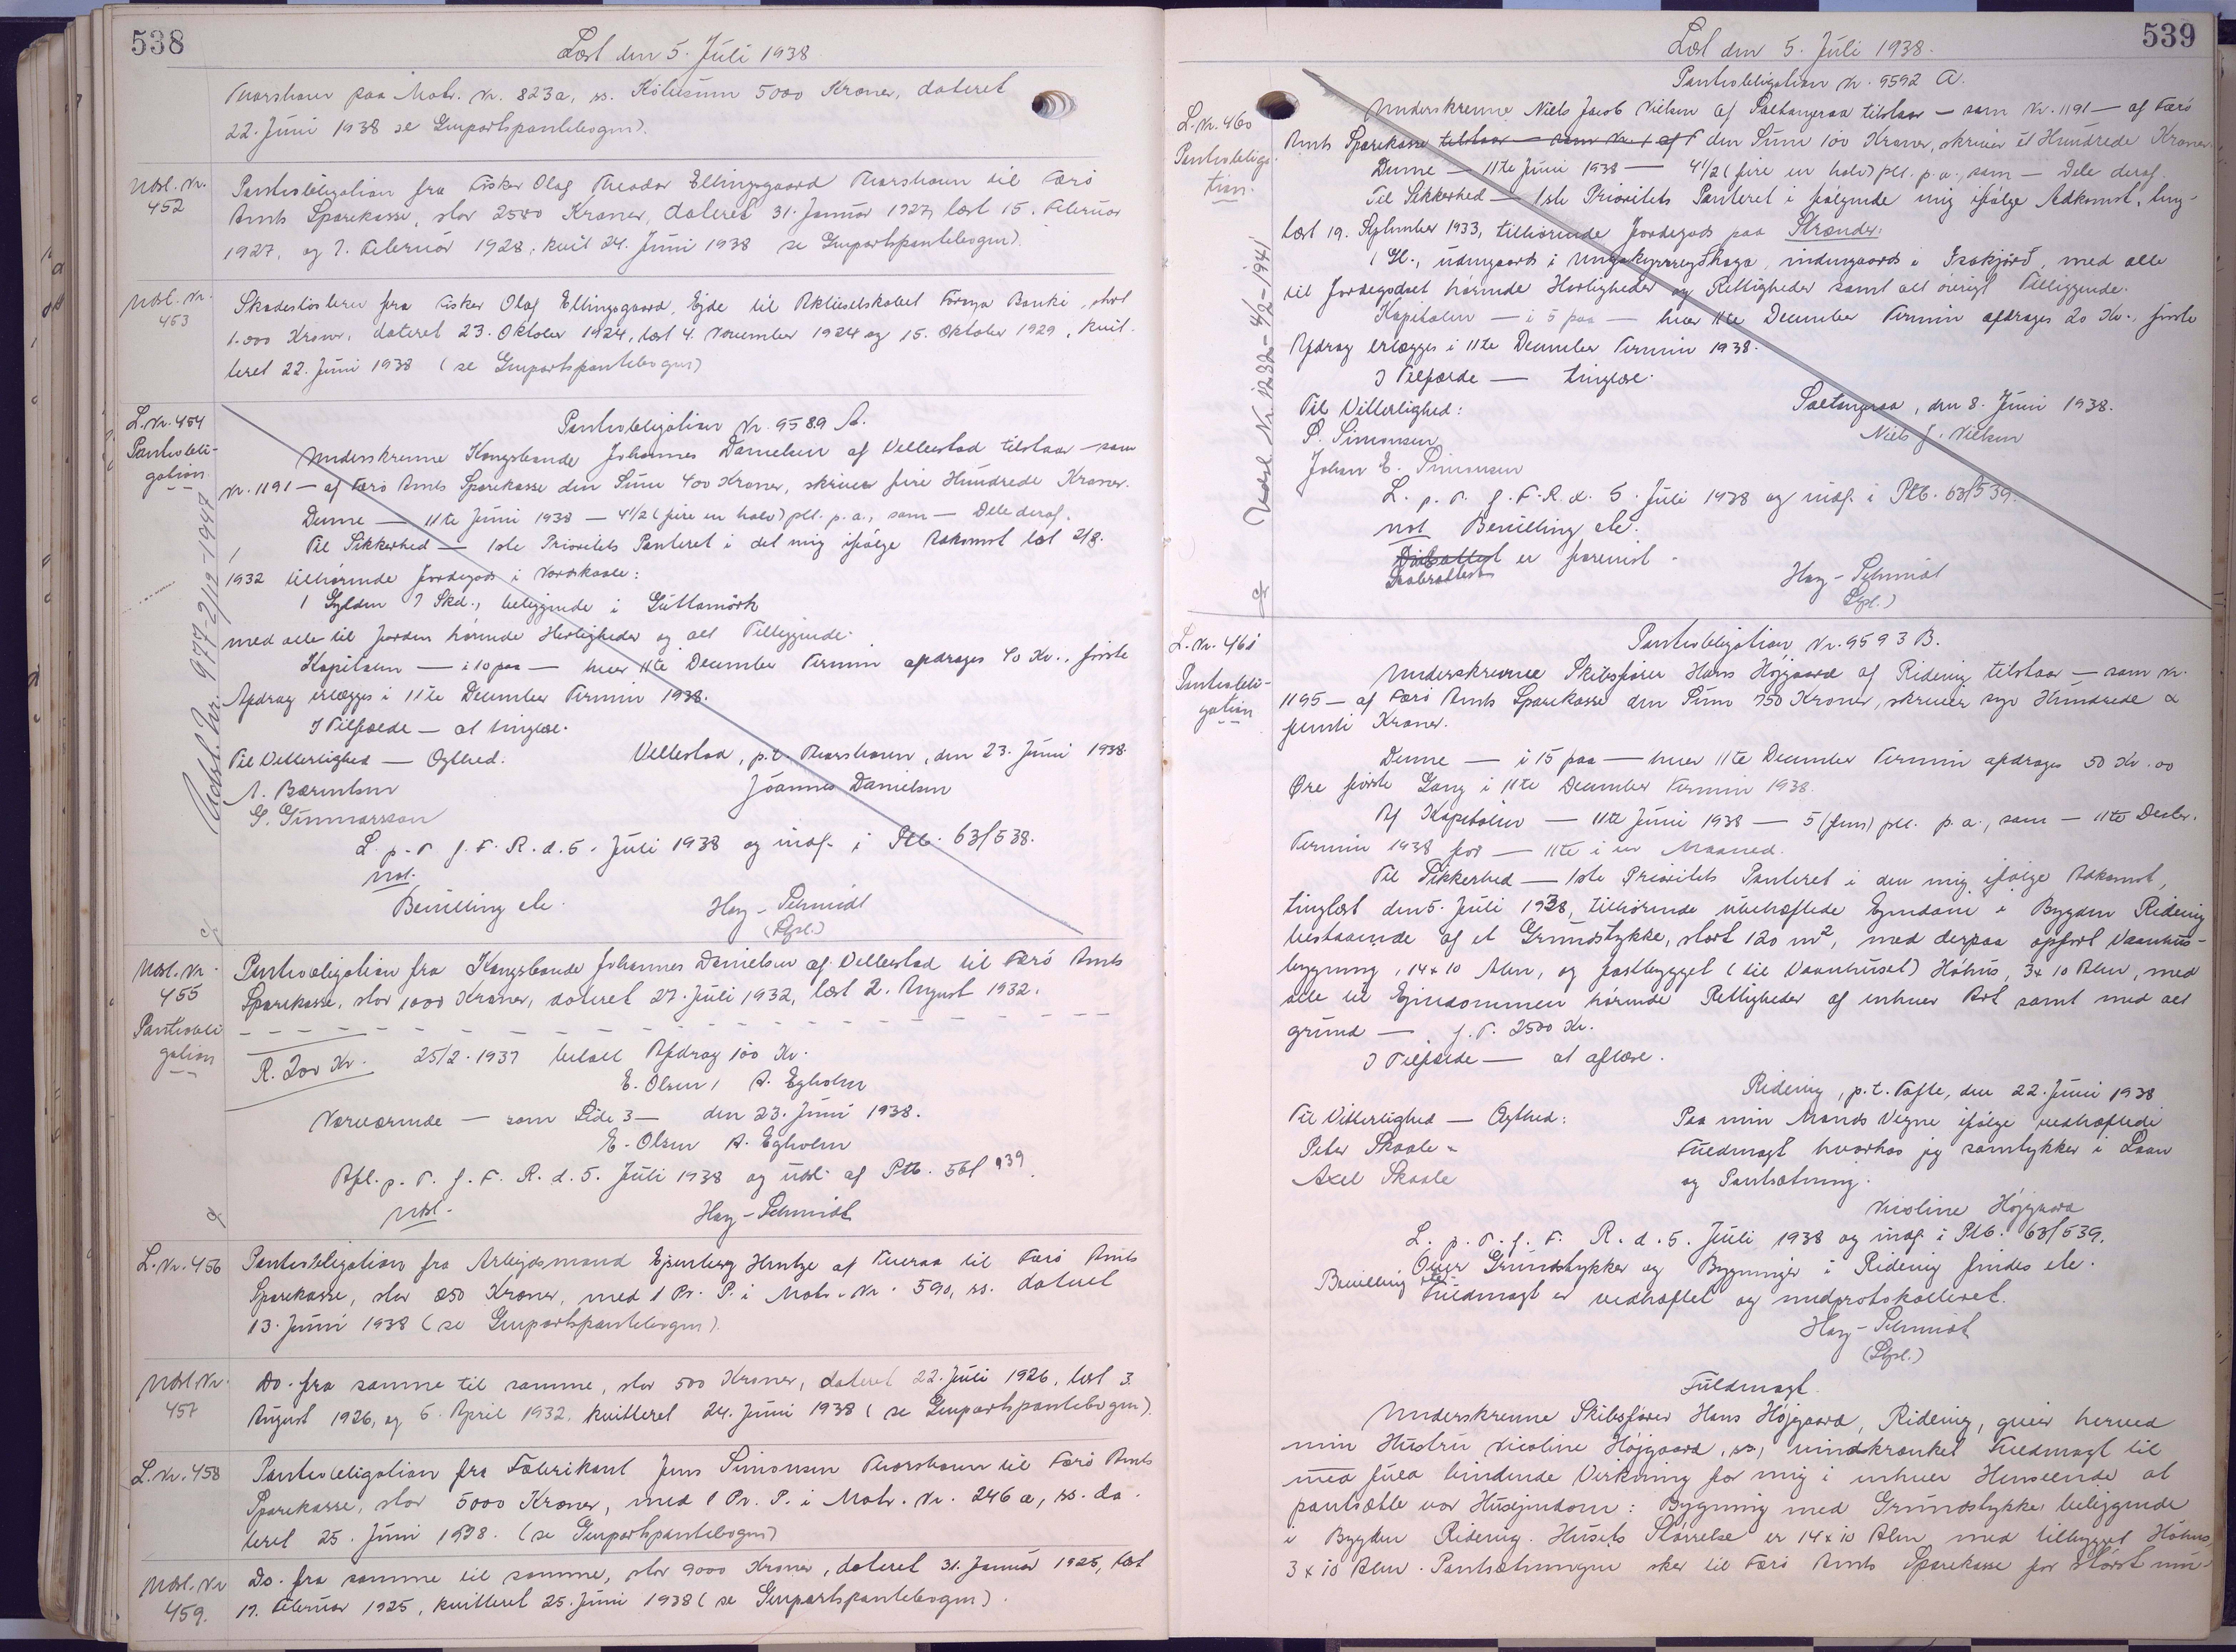 538
Læst den 5. Juli 1938
Thorshavn paa Matr. Nr. 823a, ss. Köbesum 5000 Kroner, dateret
22. Juni 1938 se Genpartspantebogen).
Udsl. Nr.
452
Pantobligation fra Fisker Olaf Theodor Ellingsgaard Thorshavn til Færö
Amts Sparekasse, stor 2500 Kroner, dateret 31. Januar 1927, læst 15. Februar
1927, og 7. Februar 1928, kvit 24. Juni 1938 se Genpartspantebogen).
Udsl. Nr.
453
Skadeslösbrev fra Fisker Olaf Ellingsgaard, Ejde til Aktieselskabet Föroya Banki, stort
1.000 Kroner, dateret 23. Oktober 1924, læst 4. November 1924 og 15. Oktober 1929, kvit-
teret 22. Juni 1938 (se Genpartspantebogen)
L. Nr. 454
Pantobli-
gation
Udsl. Nr. 977-2/12-1947
Pantobligation Nr. 9589 A.
Underskrevne Kongsbonde Johannes Danielsen af Vellestad tilstaar — som
Nr. 1191 — af Færö Amts Sparekasse den Sum 400 Kroner, skriver fire Hundrede Kroner.
Denne — 11te Juni 1938 — 4 1/2 (fire en halv) pct. p.a., som — Dele deraf.
Til Sikkerhed — 1ste Prioritets Panteret i det mig ifölge Adkomst læst 2/8.
1932 tilhörende Jordegods i Nordskaale:
1 Gylden 7 Skd., beliggende i Guttamörk
med alle til Jorden hörende Herligheder og alt Tilliggende.
Kapitalen — i 10 paa — hver 11te December Termin afdrages 40 Kr., förste
Afdrag erlægges i 11te December Termin 1938.
I Tilfælde — at tinglæse.
Til Vitterlighed — Ægthed:
Vellestad, p.t. Thorshavn, den 23. Juni 1938
A. Bærentsen
Jóannes Danielsen
G. Gunnarsson
L. p. T. f. F. R. d. 5. Juli 1938 og indf. i Ptb. 63/538.
not.
Bevilling etc.
Hoy-Schmidt
(Stpl.)
Udsl. Nr.
455
Pantobli
gation
Pantobligation fra Kongsbonde Johannes Danielsen af Vellestad til Færö Amts
Sparekasse, stor 1000 Kroner, dateret 27. Juli 1932, læst 2. August 1932.
R. 200 Kr. 25/2. 1937 betalt Afdrag 100 Kr.
E. Olsen / A. Egholm
Nærværende — som Side 3 — den 23. Juni 1938.
E. Olsen A. Egholm
Afl. p. T. f. F. R. d. 5. Juli 1938 og udsl. af Ptb. 56/939.
Udsl.
Hoy-Schmidt
L. Nr. 456
Pantobligation fra Arbejdsmand Ejzenberg Hentze af Tveraa til Færö Amts
Sparekasse, stor 850 Kroner, med 1 Pr. P. i Matr. Nr. 590, ss. dateret
13. Juni 1938 (se Genpartspantebogen).
Udsl. Nr.
457
Do. fra samme til samme, stor 500 Kroner, dateret 22. Juli 1926, læst 3.
August 1926, og 6. April 1932, kvitteret 24. Juni 1938 (se Genpartspantebogen).
L. Nr. 458
Pantobligation fra Fabrikant Jens Simonsen Thorshavn til Færö Amts
Sparekasse, stor 5000 Kroner, med 1 Pr. P. i Matr. Nr. 246a, ss. da-
teret 25. Juni 1938. (se Genpartspantebogen)
Udsl. Nr
459.
Do. fra samme til samme, stor 9000 Kroner, dateret 31. Januar 1925, læst
17. Februar 1925, kvitteret 25. Juni 1938 (se Genpartspantebogen).
539
Læst den 5. Juli 1938.
L. Nr. 460
Pantobliga-
tion.
Udsl. Nr 1232 - 4/2 - 1941
Pantobligation Nr. 9592 A.
Underskrevne Niels Jacob Nielsen af Saltangeraa tilstaar — som Nr. 1191 — af Færö
Amts Sparekasse tilstaar — som Nr. 1 af F den Sum 100 Kroner, skriver et Hundrede Kroner.
Denne — 11te Juni 1938 — 4 1/2 (fire en halv) pct. p.a., som — Dele deraf.
Til Sikkerhed — 1ste Prioritets Panteret i fölgende mig ifölge Adkomst, ting-
læst 19. September 1933, tilhörende Jordegods paa Strænder:
1 Gl., udengaards i Ungakyrrreydhaga, indengaards i Isakjörd, med alle
til Jordegodset hörende Herligheder og Rettigheder samt alt övrigt Tilliggende.
Kapitalen — i 5 paa — hver 11te December Termin afdrages 20 Kr., förste
Afdrag erlægges i 11te December Termin 1938.
I Tilfælde — tinglæse.
Til Vitterlighed:
Saltangeraa, den 8. Juni 1938.
S. Simonsen
Niels J. Nielsen
Johan E. Simonsen
L. p. T. f. F. R. d. 5. Juli 1938 og indf. i Ptb. 63/539.
not Bevilling etc.
er forevist.
Hoy-Schmidt
(Stpl.)
L. Nr. 461
Pantobli-
gation
Pantobligation Nr. 9593 B.
Underskrevne Skibsförer Hans Højgaard af Ridevig tilstaar — som Nr.
1195 — af Færö Amts Sparekasse den Sum 750 Kroner, skriver syv Hundrede &
femti Kroner.
Denne — i 15 paa — hver 11te December Termin afdrages 50 Kr. 00
Øre förste Gang i 11te December Termin 1938.
Af Kapitalen — 11te Juni 1938 — 5 (fem) pct. p.a., som — 11te Decbr.
Termin 1938 for — 11te i en Maaned.
Til Sikkerhed — 1ste Prioritets Panteret i den mig ifölge Adkomst,
tinglæst den 5. Juli 1938, tilhörende ubehæftede Ejendom i Bygden Ridevig
bestaaende af et Grundstykke, stort 120 m², med derpaa opfört Vaanhus-
bygning, 14 x 10 Alen, og fastbygget (til Vaanhuset) Höhus, 3 x 10 Alen, med
alle til Ejendommen hörende Rettigheder af enhver Art samt med alt
grund — f. T. 2500 Kr.
I Tilfælde — at aflæse.
Ridevig, p.t. Tofte, den 22. Juni 1938
Til Vitterlighed — Ægthed:
Paa min Mands Vegne ifölge vedhæftede
Peter Skaale
Fuldmagt hvorhos jeg samtykker i Laan
Axel Skaale
og Pantsætning.
Nicoline Højgaard
L. p. T. f. F. R. d. 5. Juli 1938 og indf. i Ptb. 63/539.
Over Grundstykker og Bygninger i Ridevig findes etc.
Bevilling etc. Fuldmagt er vedhæftet og medprotokolleret.
Hoy-Schmidt
(Stpl.)
Fuldmagt.
Underskrevne Skibsförer Hans Højgaard, Ridevig, giver herved
min Hustru Nicoline Højgaard, ss, uindskrænket Fuldmagt til
med fuld bindende Virkning for mig i enhver Henseende at
pantsætte vor Husejendom: Bygning med Grundstykke, beliggende
i Bygden Ridevig. Husets Störrelse er 14 x 10 Alen med tilbygget Höhus
3 x 10 Alen. Pantsætningen sker til Færö Amts Sparekasse for störst mu-